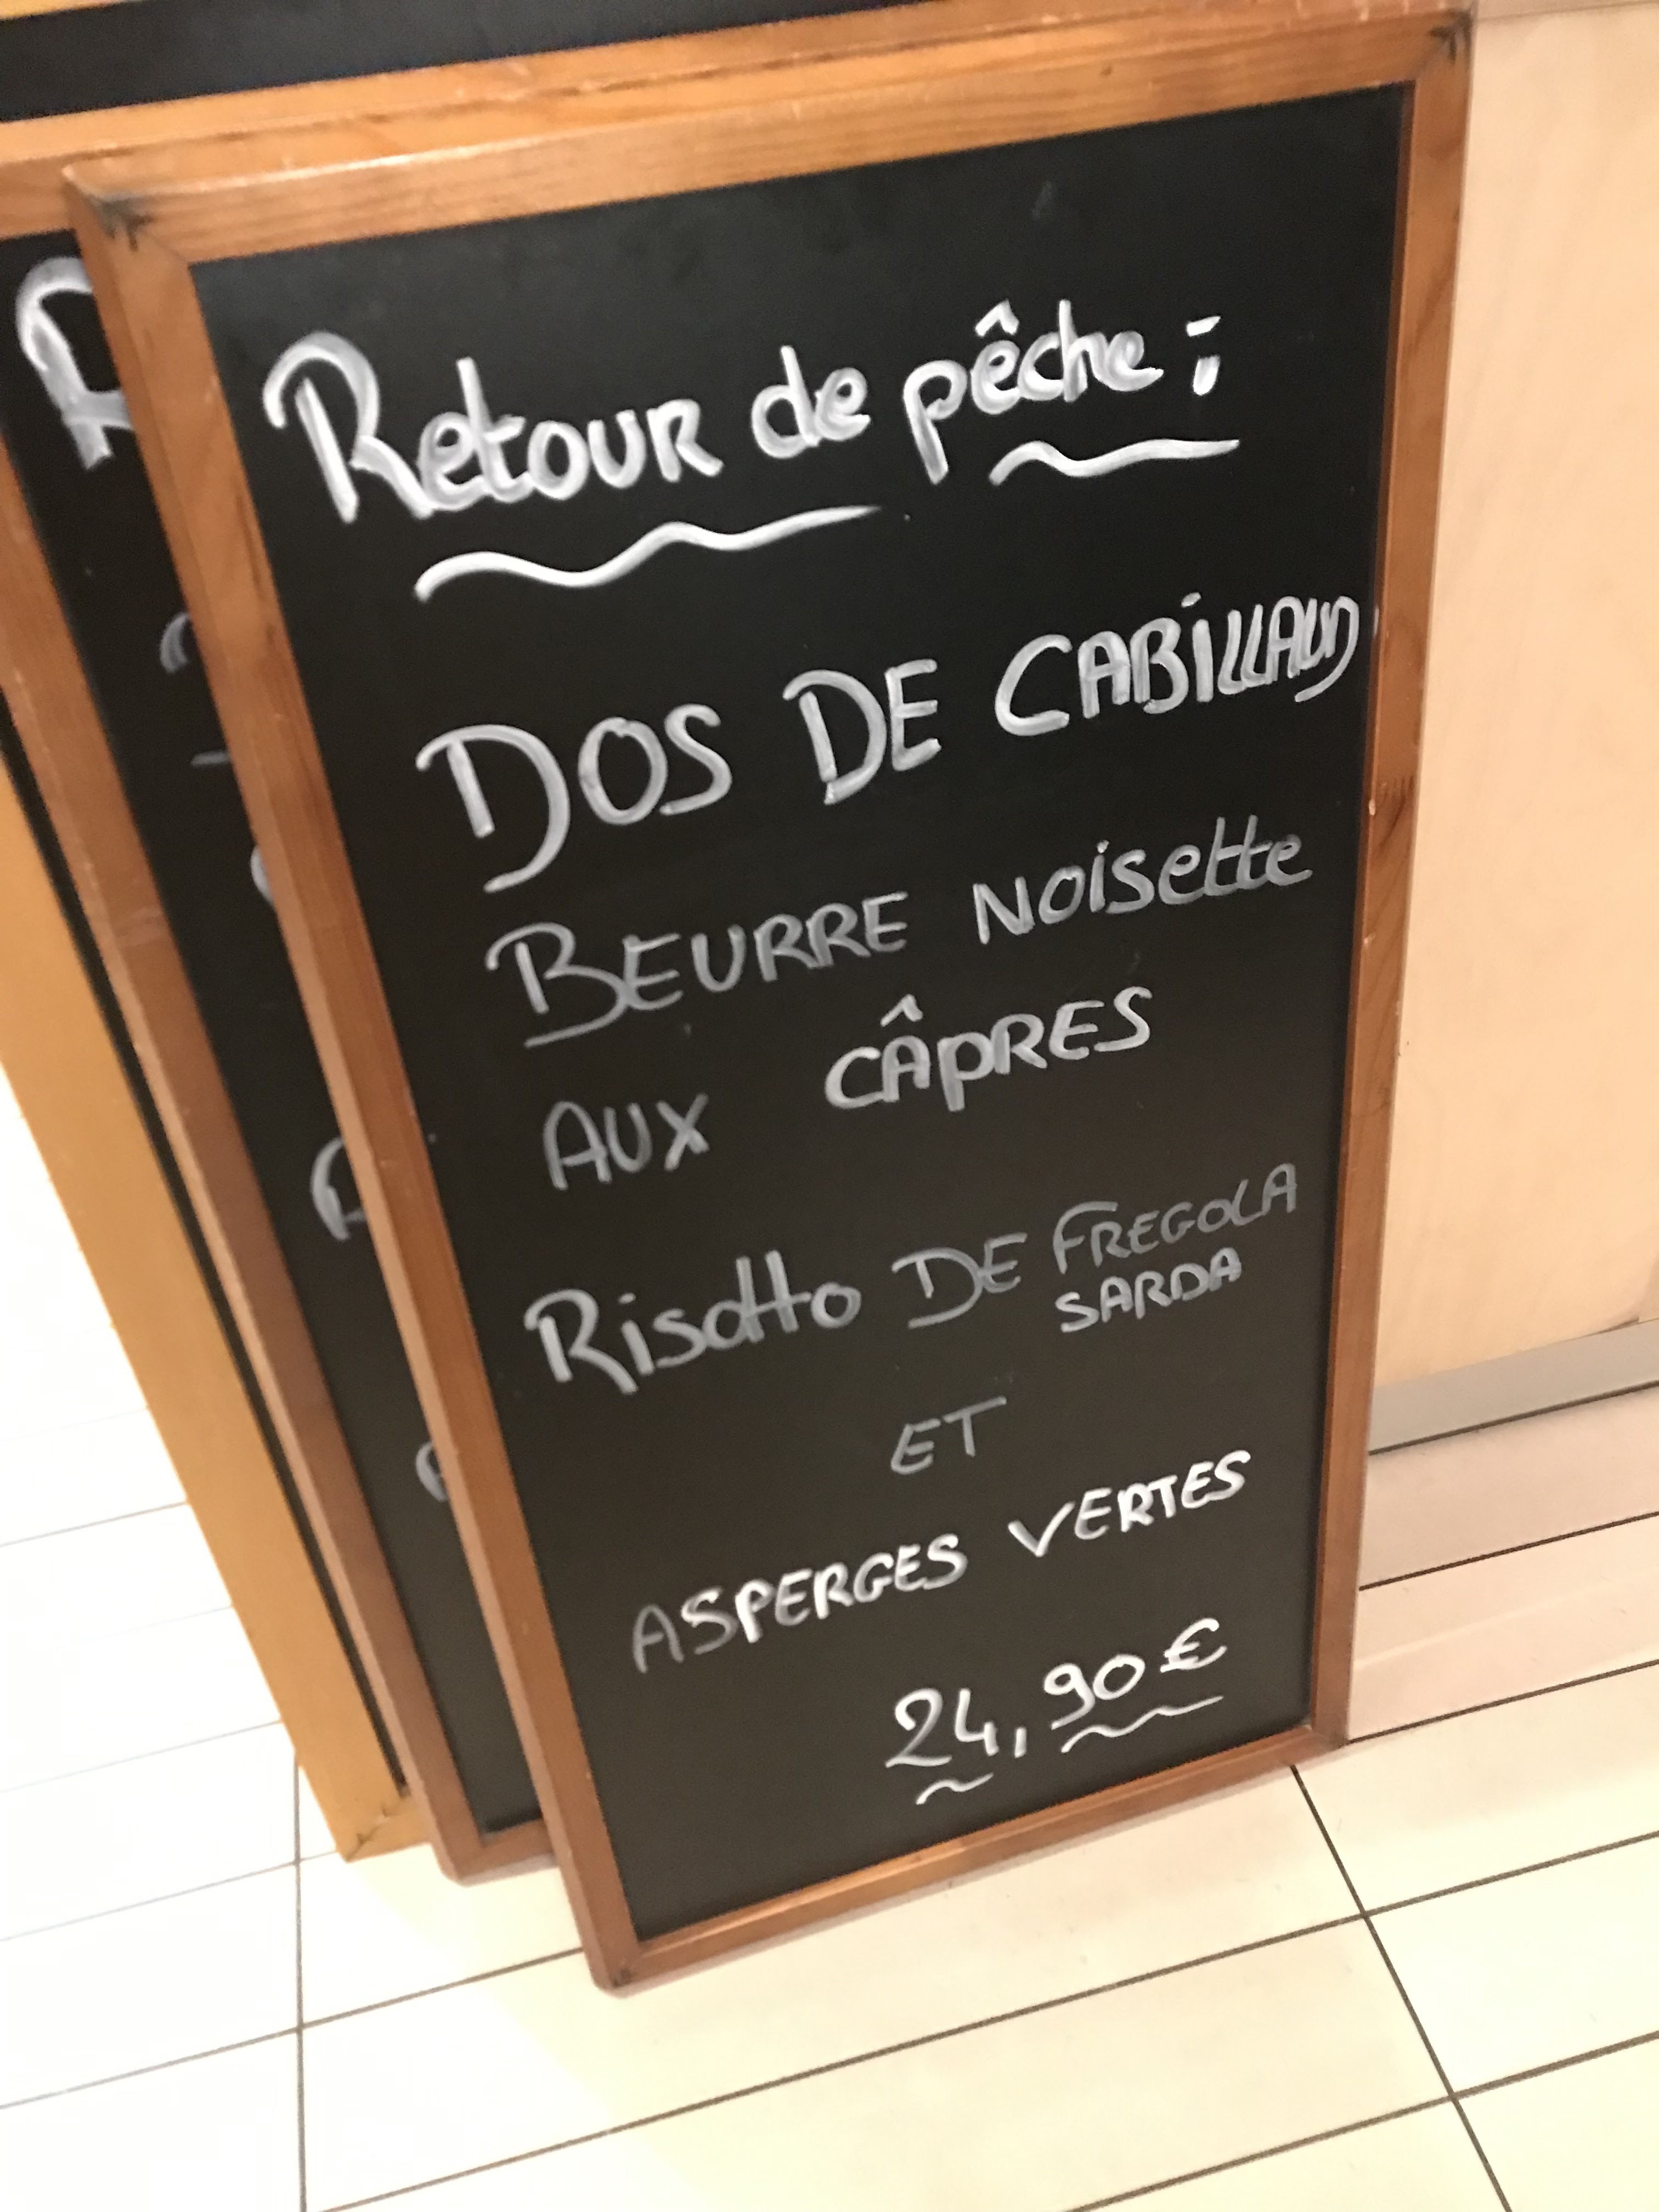 Retour de pêche :
DOS DE CABILLAUD
BEURRE NOISETTE
AUX CÂPRES
Risotto DE FREGOLA
SARDA
ET
ASPERGES VERTES
24,90€